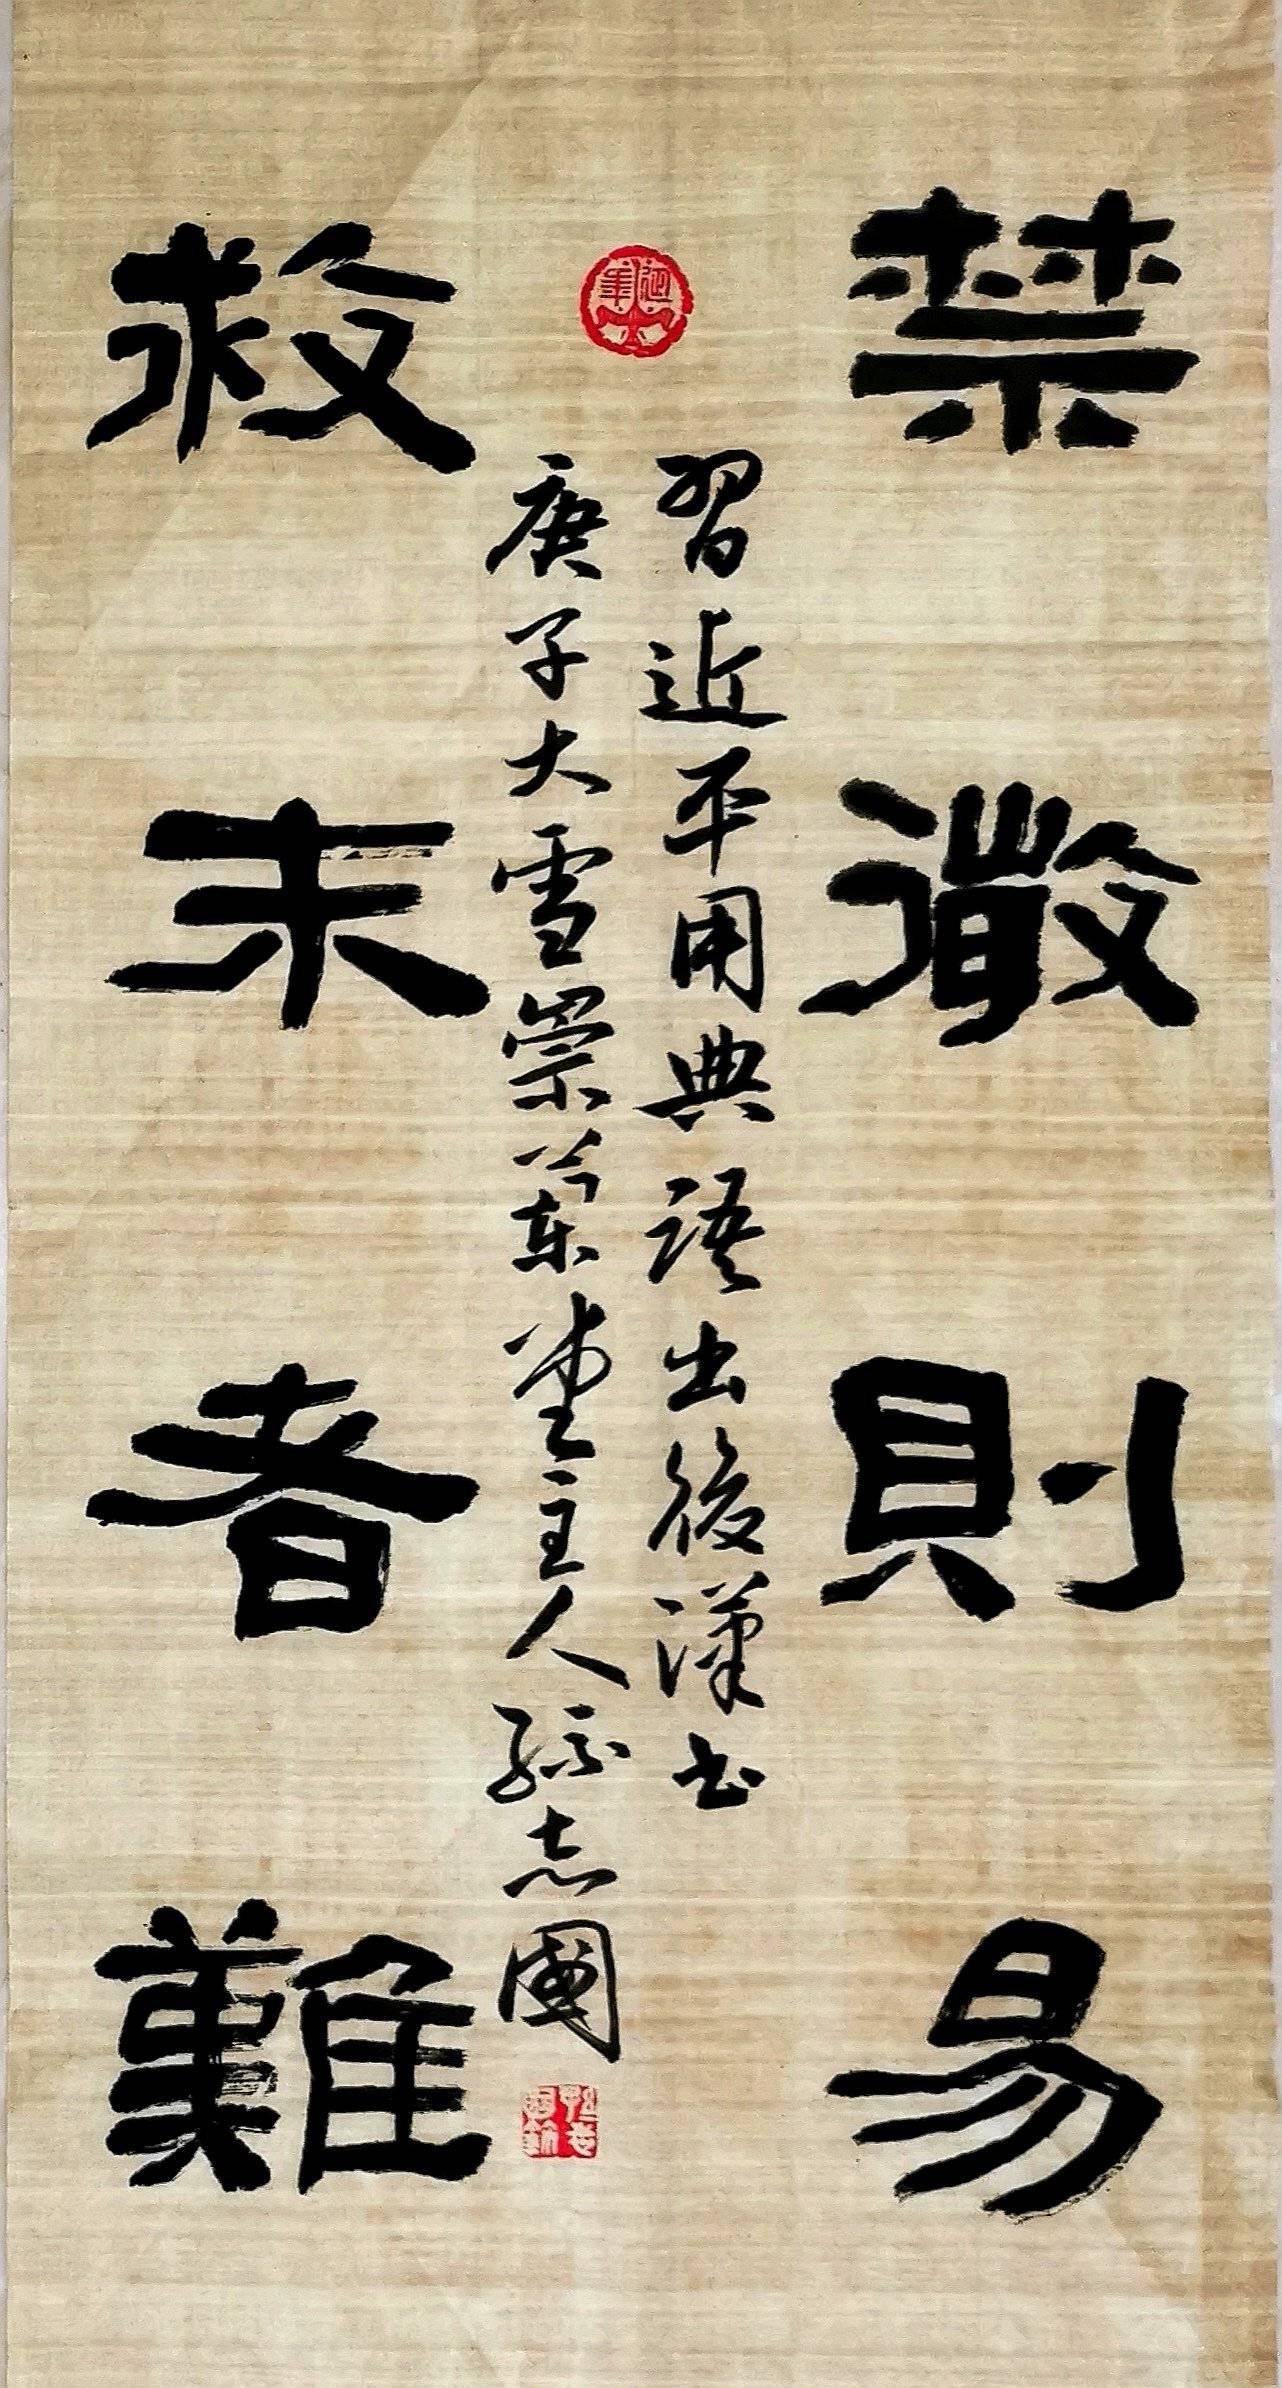 禁微則易
習近平用典語出後漢書
庚子大雪崇蘭堂主人孫志國
救末者難